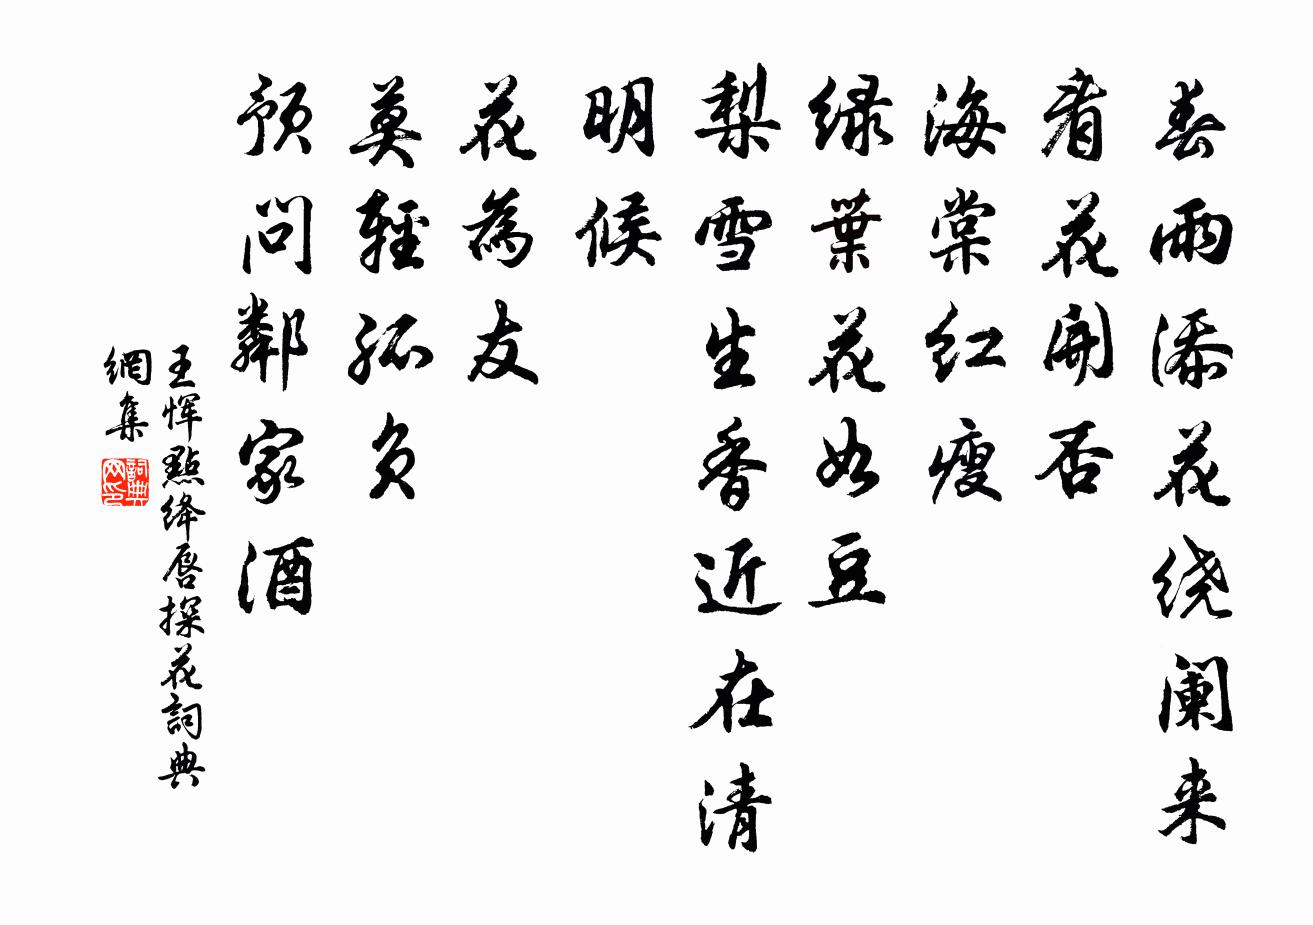 春雨添花绕阑来
看花開否
海棠红瘦
绿葉花如豆
梨雪生香近在清
明候
花為友
莫輕孤负
预问鄰家酒
王恽點绛唇探花詞典
網集
詞典
网印